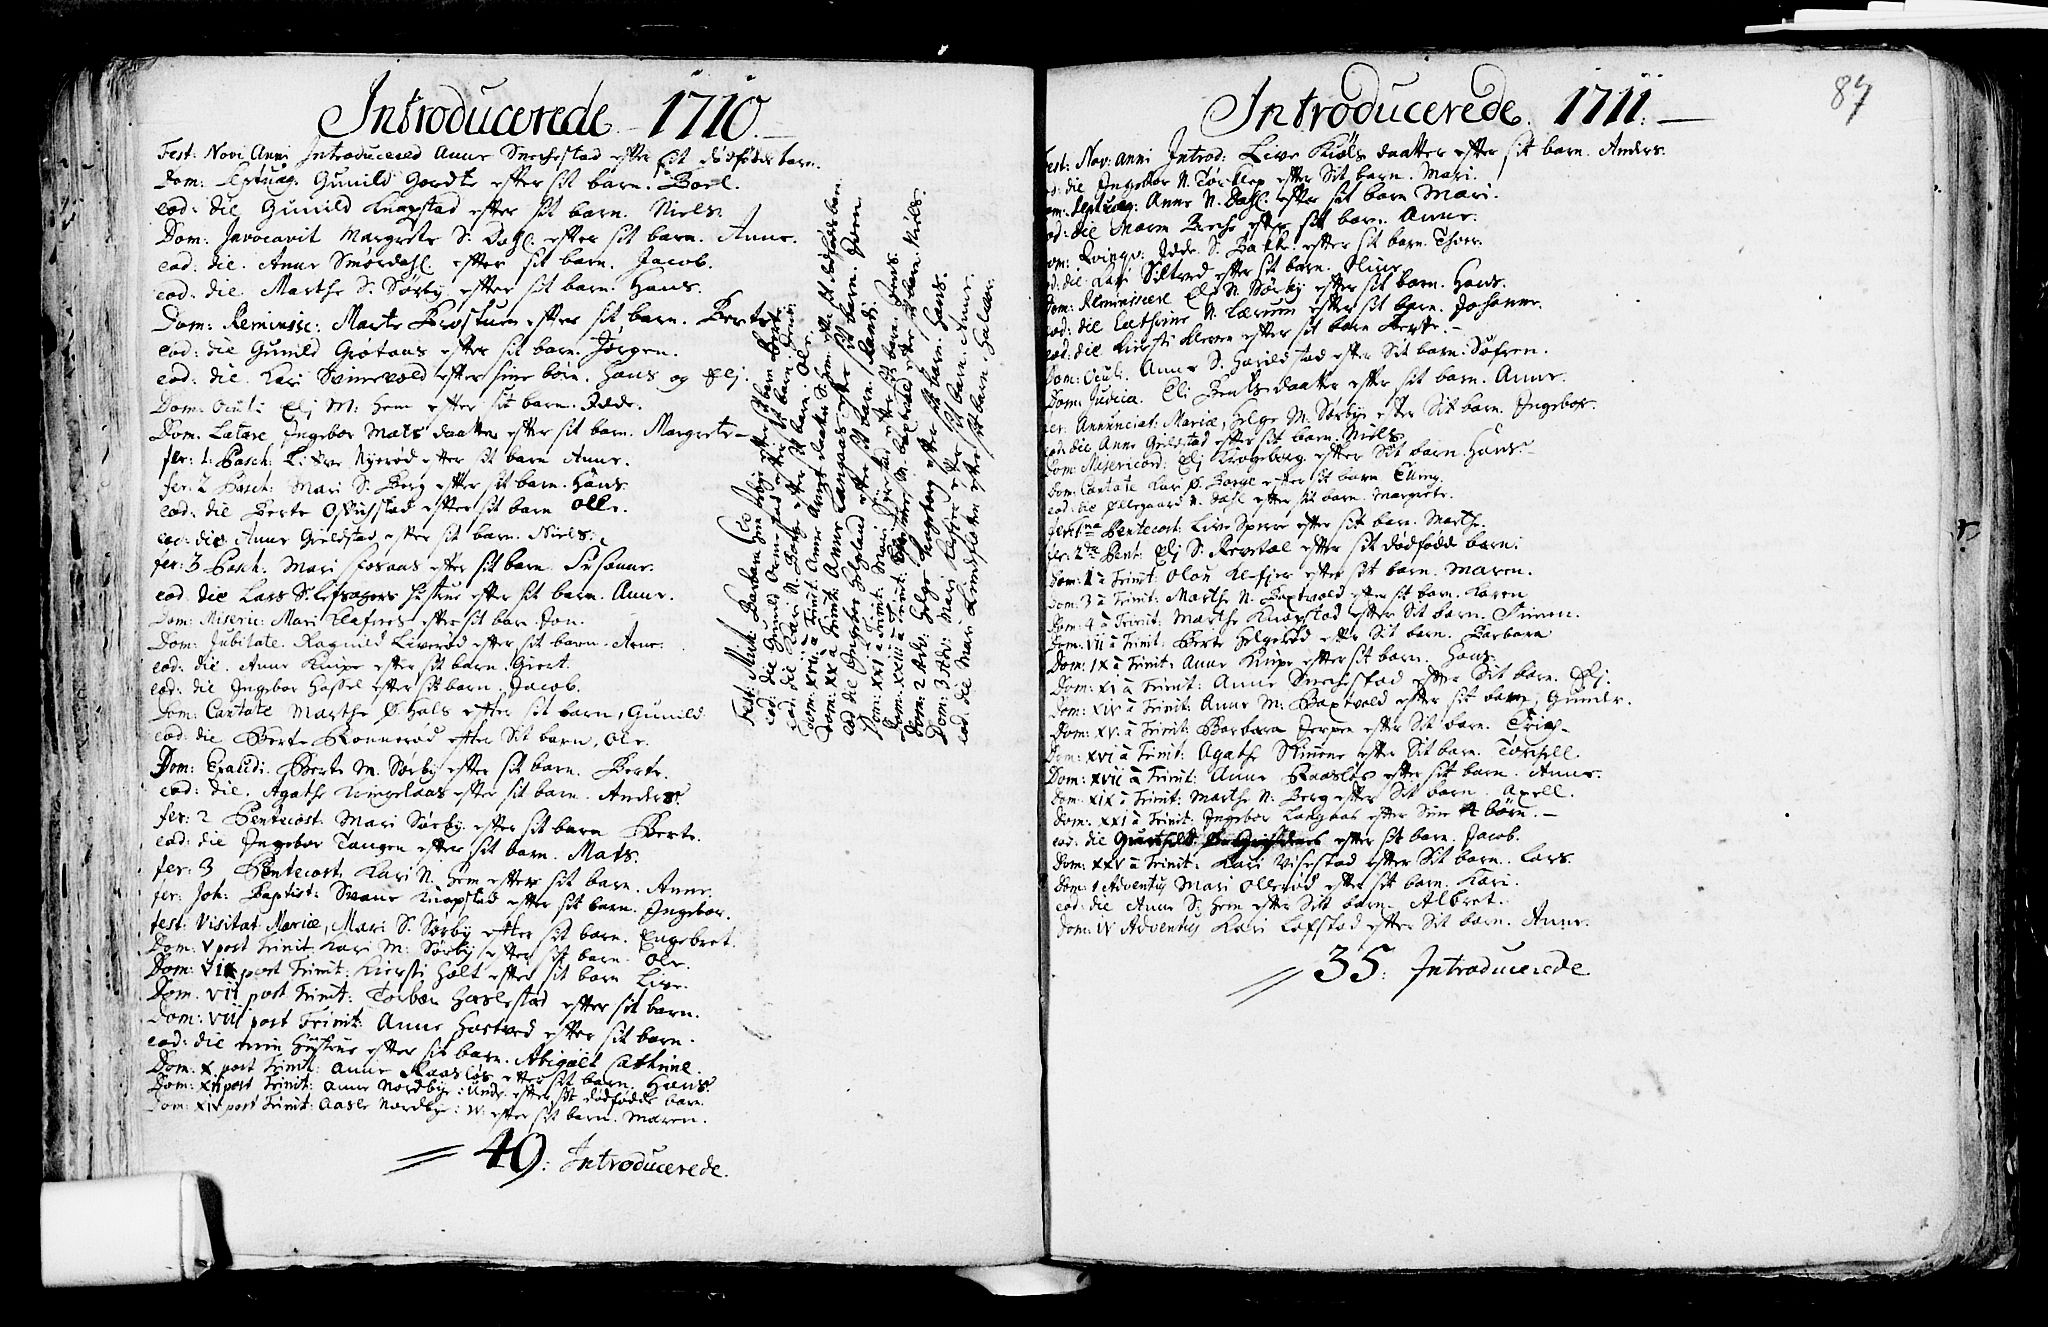 Introducerede 1710.
Fest: Novi Anni Introducered Anne Snechestad efter Et dødføde barn.
Dom: Septuag. Gunild Giordts efter sit barn. Boel.
eod: die Gunild Knapstad efter sit barn. Niels.
Dom: Invocavit Margrete S: Dahl. efter sit barn. Anne.
eod: die. Anne Smørdahl efter sit barn. Jacob.
eod: die. Marthe S. Sørby efter sit barn. Hans.
Dom: Reminisc: Marte Brostuen efter sit barn. Berte.
eod: die Gunild Giøtaas efter sit barn. Jørgen.
eod: die. Kari Svinevold efter sine børn. Hans og Elj.
Dom: Oculi Elj M: Hem efter sit barn. Idde.
Dom. Lætare Ingebor Mats daatter efter sit barn. Margrete
fer: 1. Pasch: Live Nyerød efter sit barn Anne.
fer: 2 Pasch: Mari S. Berg efter sit barn. Hans.
eod: die Berte Qvichstad efter sit barn Olle.
eod: die Anne Gieldstad efter sit barn. Niels.
fer: 3 Pasch. Mari Fosaas efter sit barn. Susanne.
eod: die Lars S: Lefsagers Hustrue efter sit barn. Anne.
Dom: Miseric: Mari Klafnes efter sit barn. Jon.
Dom: Jubilate. Ragnild Liverød efter sit barn. Arne.
eod: die. Anne Knipe efter sit barn. Giert.
eod: die Ingebor Hassel efter sit barn. Jacob.
Dom: Cantate Marthe Ø. Hals efter sit barn, Gunild.
eod: die Berte Ronnerød efter Sit barn, Ole.
Dom: Exaudi. Berte M. Sørby efter sit barn. Berte.
eod: die. Agathe Kingelaas efter sit barn. Anders.
fer: 2 Pentecost. Mari Sørby efter sit barn Berte.
eod: die Ingebor Tangen efter sit barn. Mats.
fer: 3 Pentecost. Kari N. Hem efter sit barn. Anne.
fer. Joh: Baptist: Svane Knapstad efter sit barn. Ingebor.
fest: Visitat: Mariæ, Mari S. Sørby efter sit barn. Engebret.
Dom: V post Trinit. Kari M: Sørby efter sit barn. Ole.
Dom: VI post Trinit: Kiersti Holt efter sit barn Live.
Dom: VII post Trinit: Torbor Haslestad efter sit barn.
Dom: VIII post Trinit: Anne Hastved efter sit barn.
eod: die min Hustrue efter sit barn. Abigaël Cathrine.
Dom: X. post Trinit: Anne Raasløs efter sit barn. Hans.
Dom: XII post Trinit: Anne Nordbye: Undr. efter sit dødfødde barn.
Dom: XIV post Trinit: Aasle Nordbye: W. efter sit barn. Maren.
49: Introducerede.
Fest: Mich: Barbara efter sit barn Berte.
eod: die Gunild efter sit barn
eod: die Kari N. Borge efter sit barn. Ole.
Dom: XVII à Trinit: Anne Arnes daatter S: Hem efter sit dødfødde barn.
Dom: XX à Trinit: Anne Langaas efter sit barn. Soren
eod die Ingebor Helgeland efter sit barn. Randi.
Dom: XXI à Trinit: Mari efter sit barn. Jens.
Dom: XXIII à Trinit: M. Baxtvold efter sit barn. Niels.
Dom: 2 Adv: Helge Hageberg efter sit barn. Hans.
Dom: 3 Adv: Mari efter sit barn. Anne.
eod: die Mari Lindsflaten efter sit barn. Halvor.
Introducerede. 1711.
87
Fest: Nov: Anni Introd: Live Kiøls daatter efter sit barn. Anders.
eod: die Ingebor N. Tørtlep efter Sit barn. Mari.
Dom: Septuag: Anne N. Dahl. efter sit barn Mari.
eod: die Maren Berche efter sit barn. Anne.
Dom: Qvinqv: Idde S. Backe efter sit barn. Thore.
eod: die Kari Siltved efter sit barn. Oline.
Dom: Reminiscere Eli N. Sørby efter sit barn. Hans.
eod: die Cathrine N. Lærum efter sit barn. Johanne.
eod: die Kiersti Kleven efter sit barn Berte.
Dom: Oculi. Anne S. Harildstad efter Sit barn. Søfren.
Dom: Judica. Eli Bentsdaatter efter sit barn. Anne.
fer: Annunciat: Mariæ, Helge M. Sørbye efter Sit barn. Ingebor.
eod: die Anne Gieldstad efter sit barn. Niels.
Dom: Misericord: Elj Krogeborg efter Sit barn. Hans.
Dom: Cantate Kari Ø. Borge efter sit barn
eod: die Øllegaard N. Dahl efter sit barn. Margrete.
fer: 1ma Pentecost: Live Sperre efter sit barn. Marthe.
fer: 2da Pent: Elj S: Revetal efter sit dødfødd barn.
Dom: 1 à Trinit: Olou Klefjer efter sit barn. Maren.
Dom: 3 à Trinit: Marthe N. Baxtvold efter sit barn. Karen
Dom: 4 à Trinit: Marthe Knapstad efter Sit barn. Simen.
Dom: VII à Trinit: Berte Helgerød efter Sit barn. Barbara
Dom: IX à Trinit: Anne Knipe efter sit barn. Hans.
Dom: XI à Trinit: Anne Snechestad efter Sit barn. Elj.
Dom: XIV à Trinit: Anne M: Baxtvold efter sit barn, Gunile.
Dom: XV. à Trinit: Barbara Jerpen efter Sit barn. Trich
Dom: XVI à Trinit: Agathe Skinne efter Sit barn. Torchell.
Dom: XVII à Trinit: Anne Raasløs efter sit barn. Anne.
Dom: XIX à Trinit: Marthe N: Berg efter Sit barn. Axell.
Dom: XXI à Trinit: Ingebor Langaas efter Sine 4 børn.
eod: die efter sit barn. Jacob.
Dom: XXV à Trinit: Kari Visestad efter Sit barn. Lars.
Dom: 1 Adventus Mari Ollerød efter sit barn. Kari.
eod: die Anne S: Hem efter Sit barn. Albret.
Dom: IV Adventus Kari Lefstad efter Sit barn. Anne.
35: Introducerede